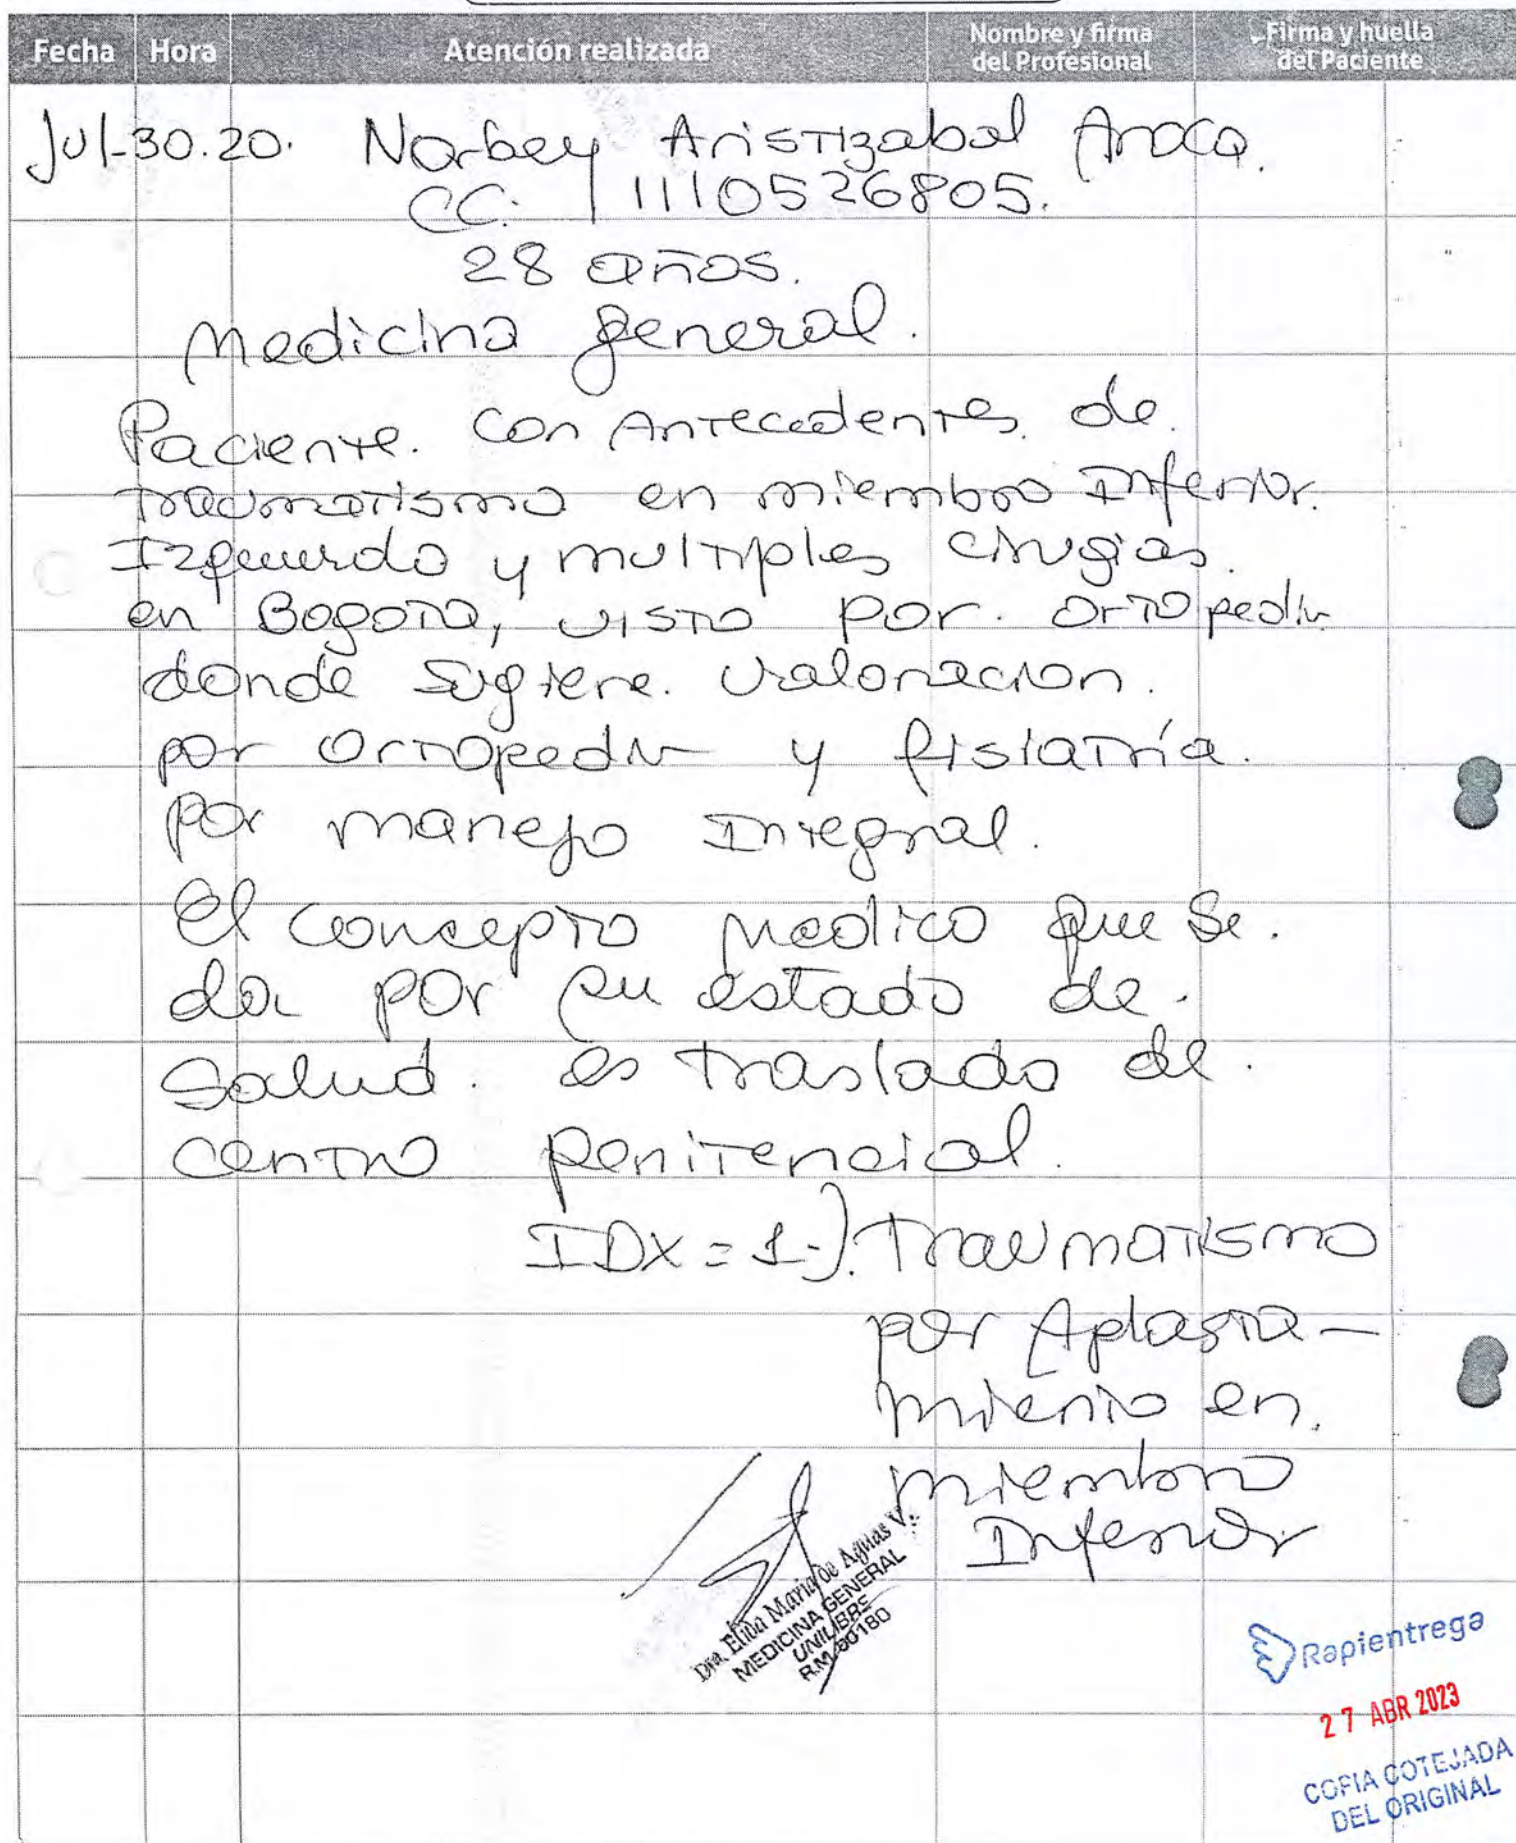 Fecha Hora Atención realizada Nombre y firma del Profesional Firma y huella del Paciente
Jul-30.20. Norbey Aristizabal Aroca.
CC. 1110526805.
28 años.
Medicina general.
Paciente. con Antecedentes de.
Traumatismo en miembro Inferior.
Izquierdo y multiples cirugias.
en Bogota, visto por. ortopedia
donde sugiere. valoracion.
por Ortopedia y fisiatría.
por manejo Integral.
El concepto medico que se.
da por su estado de.
salud. es traslado de.
centro penitencial.
IDX = 1-). Traumatismo
por Aplasta-
miento en.
miembro
Inferior
Dra. Elida Maria de Aguas V.
MEDICINA GENERAL
UNILIBRE
R.M. 80180
Rapientrega
27 ABR 2023
COPIA COTEJADA
DEL ORIGINAL